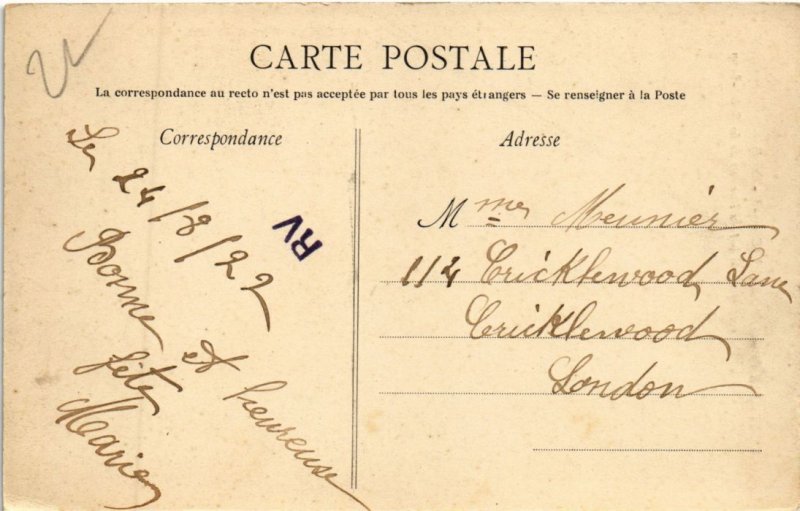 CARTE POSTALE
La correspondance au recto n'est pas acceptée par tous les pays étrangers — Se renseigner à la Poste
Correspondance
Le 24/8/22
Bonne et heureuse
fête
Marie
RV
Adresse
Mmes Meunier
114 Cricklewood Lane
Cricklewood
London